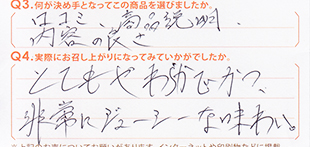 Q3.何が決め手となってこの商品を選びましたか。
口コミ、商品説明、
内容の良さ
Q4.実際にお召し上がりになってみていかがでしたか。
とてもやわらかでかつ、
非常にジューシーな味わい。